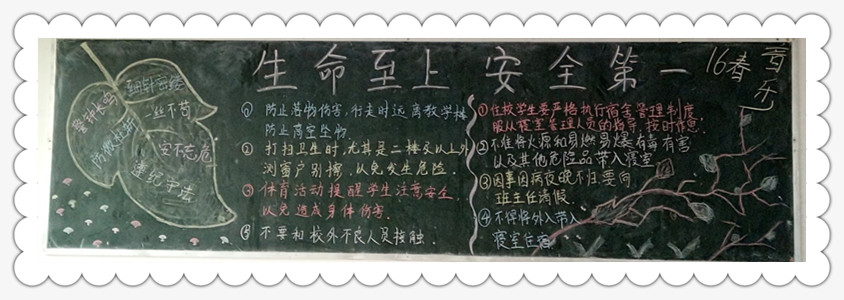 生命至上 安全第一
16春
音乐
细针密缕
一丝不苟
警钟长鸣
防微杜渐
安不忘危
遵纪守法
① 防止落物伤害,行走时远离教学楼
防止高空坠物.
② 打扫卫生时,尤其是二楼及以上外
测窗户别擦,以免发生危险.
③ 体育活动提醒学生注意安全
以免造成身体伤害.
④ 不要和校外不良人员接触.
①住校学生要严格执行宿舍管理制度,
服从寝室管理人员的指导,按时作息.
②不准将火源和易燃易爆有毒有害
以及其他危险品带入寝室
③因事因病夜晚不归,要向
班主任请假.
④不得将外人带入
寝室住宿